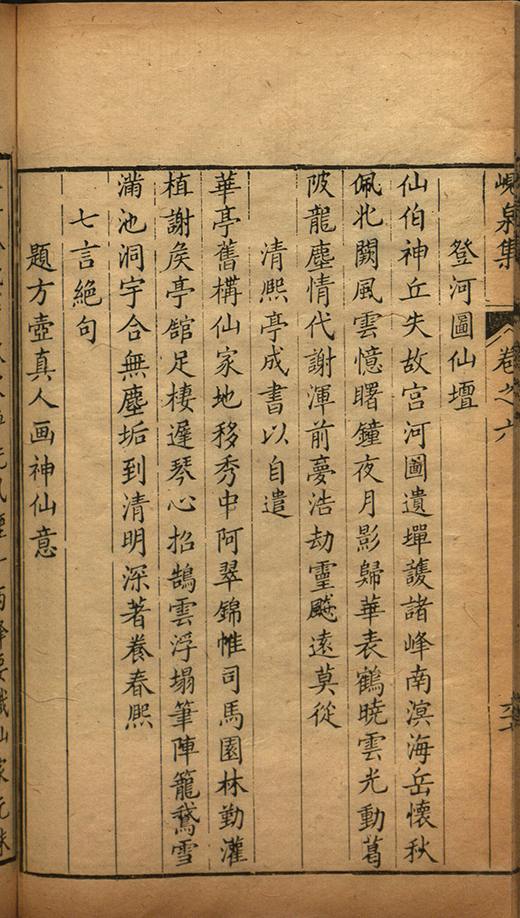 峴泉集 卷之六
登河圖仙壇
仙伯神丘失故宮河圖遺墠護諸峰南溟海岳懷秋
佩北闕風雲憶曙鐘夜月影歸華表鶴曉雲光動葛
陂龍塵情代謝渾前夢浩劫靈飈遠莫從
清熙亭成書以自遣
華亭舊構仙家地移秀中阿翠錦帷司馬園林勤灌
植謝矦亭舘足棲遲琴心招鵠雲浮塌筆陣籠鵞雪
滿池洞宇合無塵垢到清明深著養春熙
七言絶句
題方壺真人画神仙意